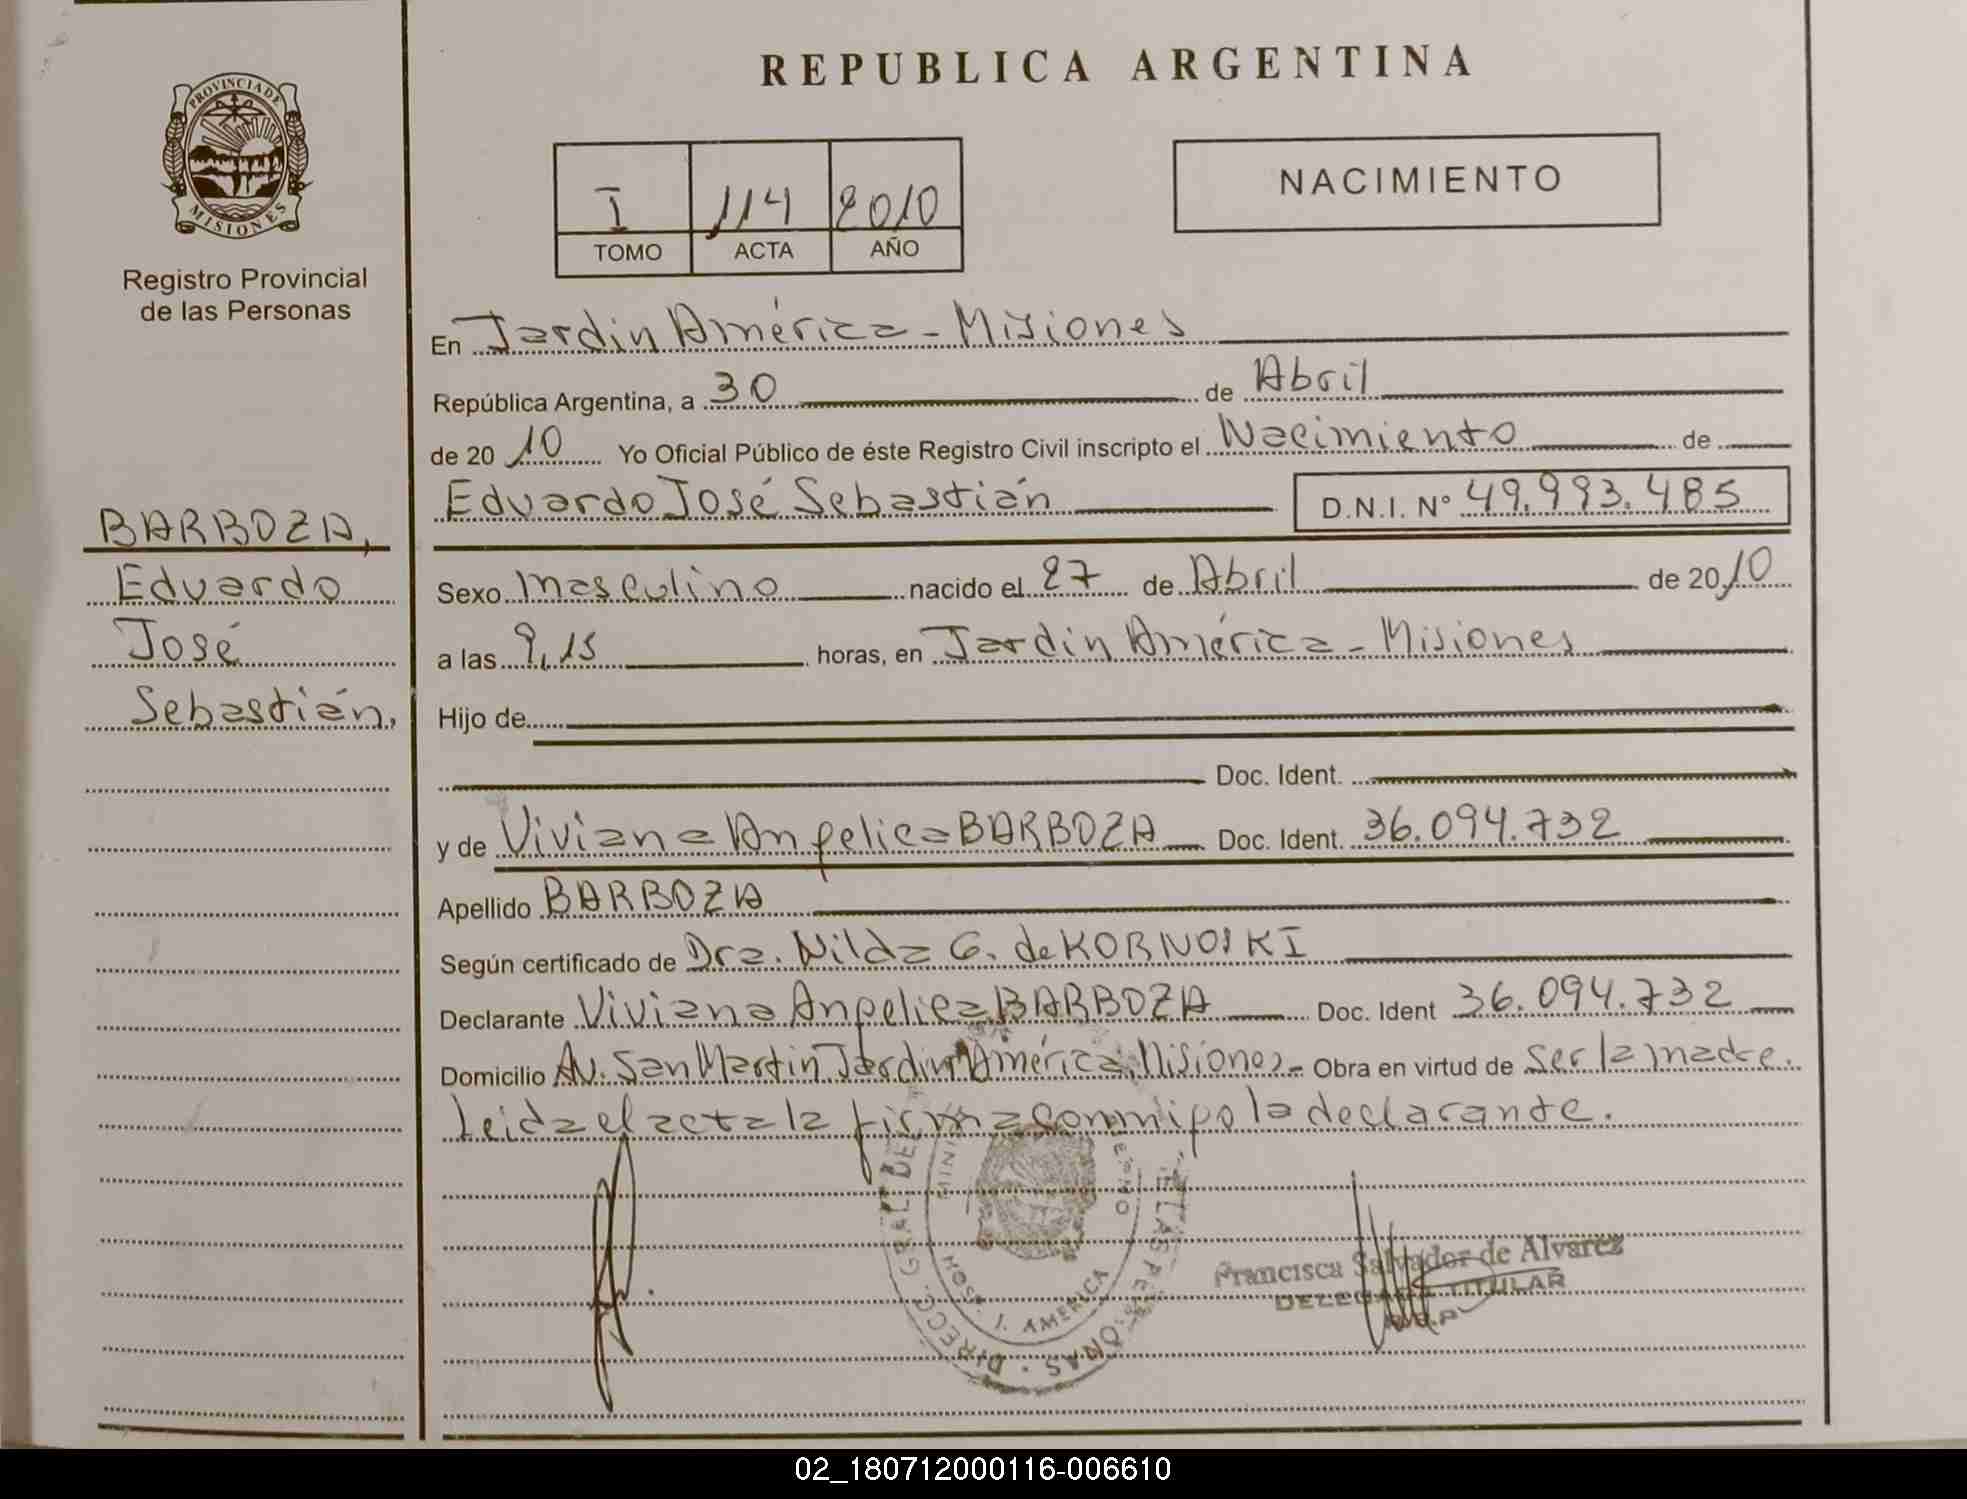 REPUBLICA ARGENTINA
PROVINCIA DE
MISIONES
Registro Provincial
de las Personas
I 114 2010
TOMO ACTA AÑO
NACIMIENTO
BARBOZA,
Eduardo
José
Sebastián,
En Jardin América - Misiones
República Argentina, a 30 de Abril
de 20 10 Yo Oficial Público de éste Registro Civil inscripto el Nacimiento de
Eduardo José Sebastián D.N.I. Nº 49.993.485
Sexo masculino nacido el 27 de Abril de 2010
a las 9,15 horas, en Jardin América - Misiones
Hijo de
Doc. Ident.
y de Viviana Angelica BARBOZA Doc. Ident. 36.094.732
Apellido BARBOZA
Según certificado de Dra. Nilda G. de KORNOSKI
Declarante Viviana Angelica BARBOZA Doc. Ident 36.094.732
Domicilio Av. San Martin Jardin América, Misiones - Obra en virtud de ser la madre.
Leida el acta la firma conmigo la declarante.
DIRECC. GRAL DE LAS PERSONAS
HOSP. J. AMERICA
Francisca Salvador de Alvarez
DELEGADA TITULAR
02_180712000116-006610